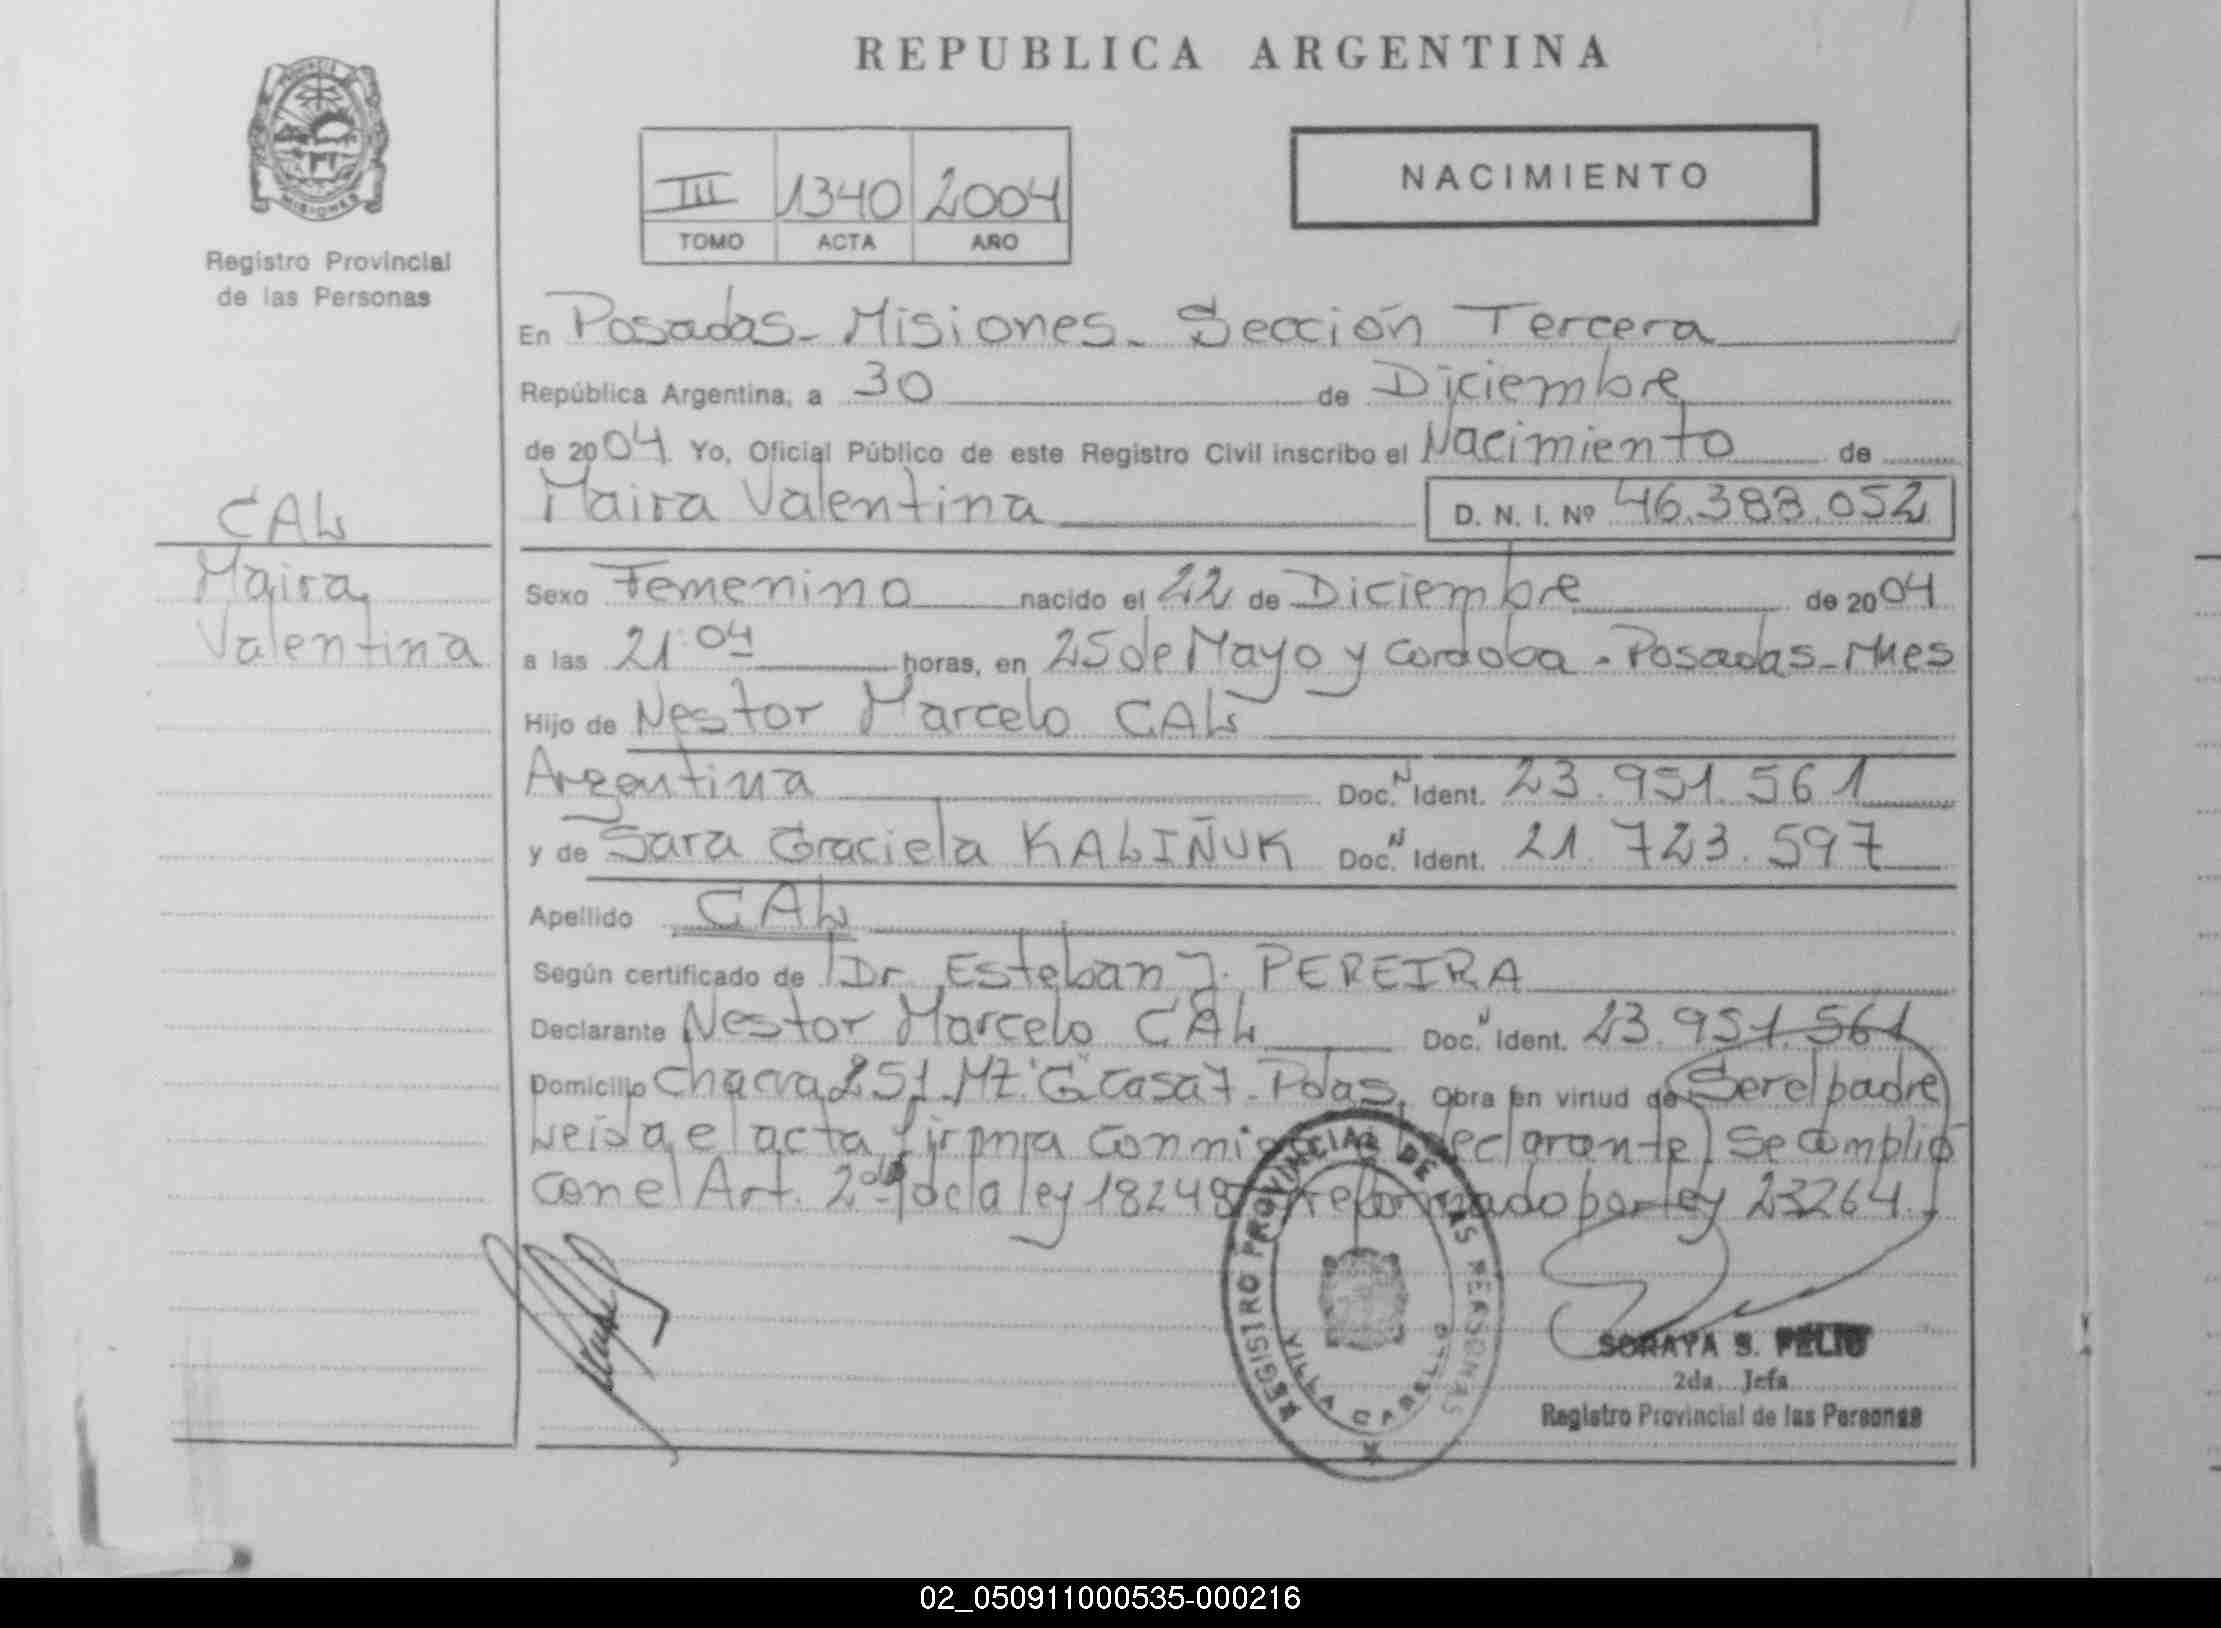 REPUBLICA ARGENTINA
PROVINCIA DE MISIONES
Registro Provincial
de las Personas
III 1340 2004
TOMO ACTA AÑO
NACIMIENTO
En Posadas - Misiones - Sección Tercera
República Argentina, a 30 de Diciembre
de 2004 Yo, Oficial Público de este Registro Civil inscribo el Nacimiento de
Maira Valentina D. N. I. Nº 46.388.052
CAL
Maira
Valentina
Sexo Femenino nacido el 22 de Diciembre de 2004
a las 21 04 horas, en 25 de Mayo y Cordoba - Posadas - Mnes
Hijo de Nestor Marcelo CAL
Argentina Doc. N Ident. 23.951.561
y de Sara Graciela KALIÑUK Doc. N Ident. 21.723.597
Apellido CAL
Según certificado de Dr. Esteban J. PEREIRA
Declarante Nestor Marcelo CAL Doc. N Ident. 23.951.561
Domicilio Chacra 251 Mz "G" Casa 7 - Pdas. Obra en virtud de Ser el padre
Leida el acta firma conmigo el declarante) Se cumplió
con el Art. 2do de la ley 18248 reformado por ley 23264.
REGISTRO PROVINCIAL DE LAS PERSONAS
VILLA CABELLO
SORAYA S. FELIU
2da. Jefa
Registro Provincial de las Personas
02_050911000535-000216